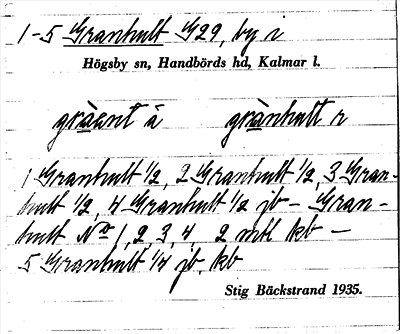 1-5 Granhult G29, by i
Högsby sn, Handbörds hd, Kalmar l.
gràent à grànhult r
1 Granhult 1/2, 2 Granhult 1/2, 3 Gran-
hult 1/2, 4 Granhult 1/2 jb - Gran-
hult No 1, 2, 3, 4, 2 mtl kb -
5 Granhult 1/4 jb, kb
Stig Bäckstrand 1935.